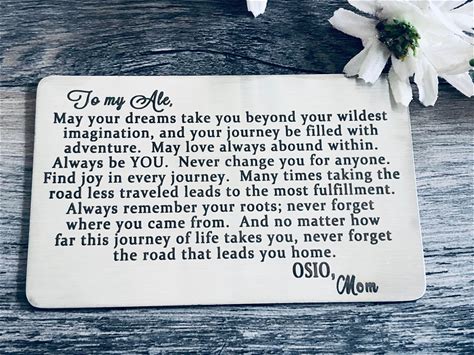 To my Ale,
May your dreams take you beyond your wildest
imagination, and your journey be filled with
adventure. May love always abound within.
Always be YOU. Never change you for anyone.
Find joy in every journey. Many times taking the
road less traveled leads to the most fulfillment.
Always remember your roots; never forget
where you came from. And no matter how
far this journey of life takes you, never forget
the road that leads you home.
OSIO,
Mom